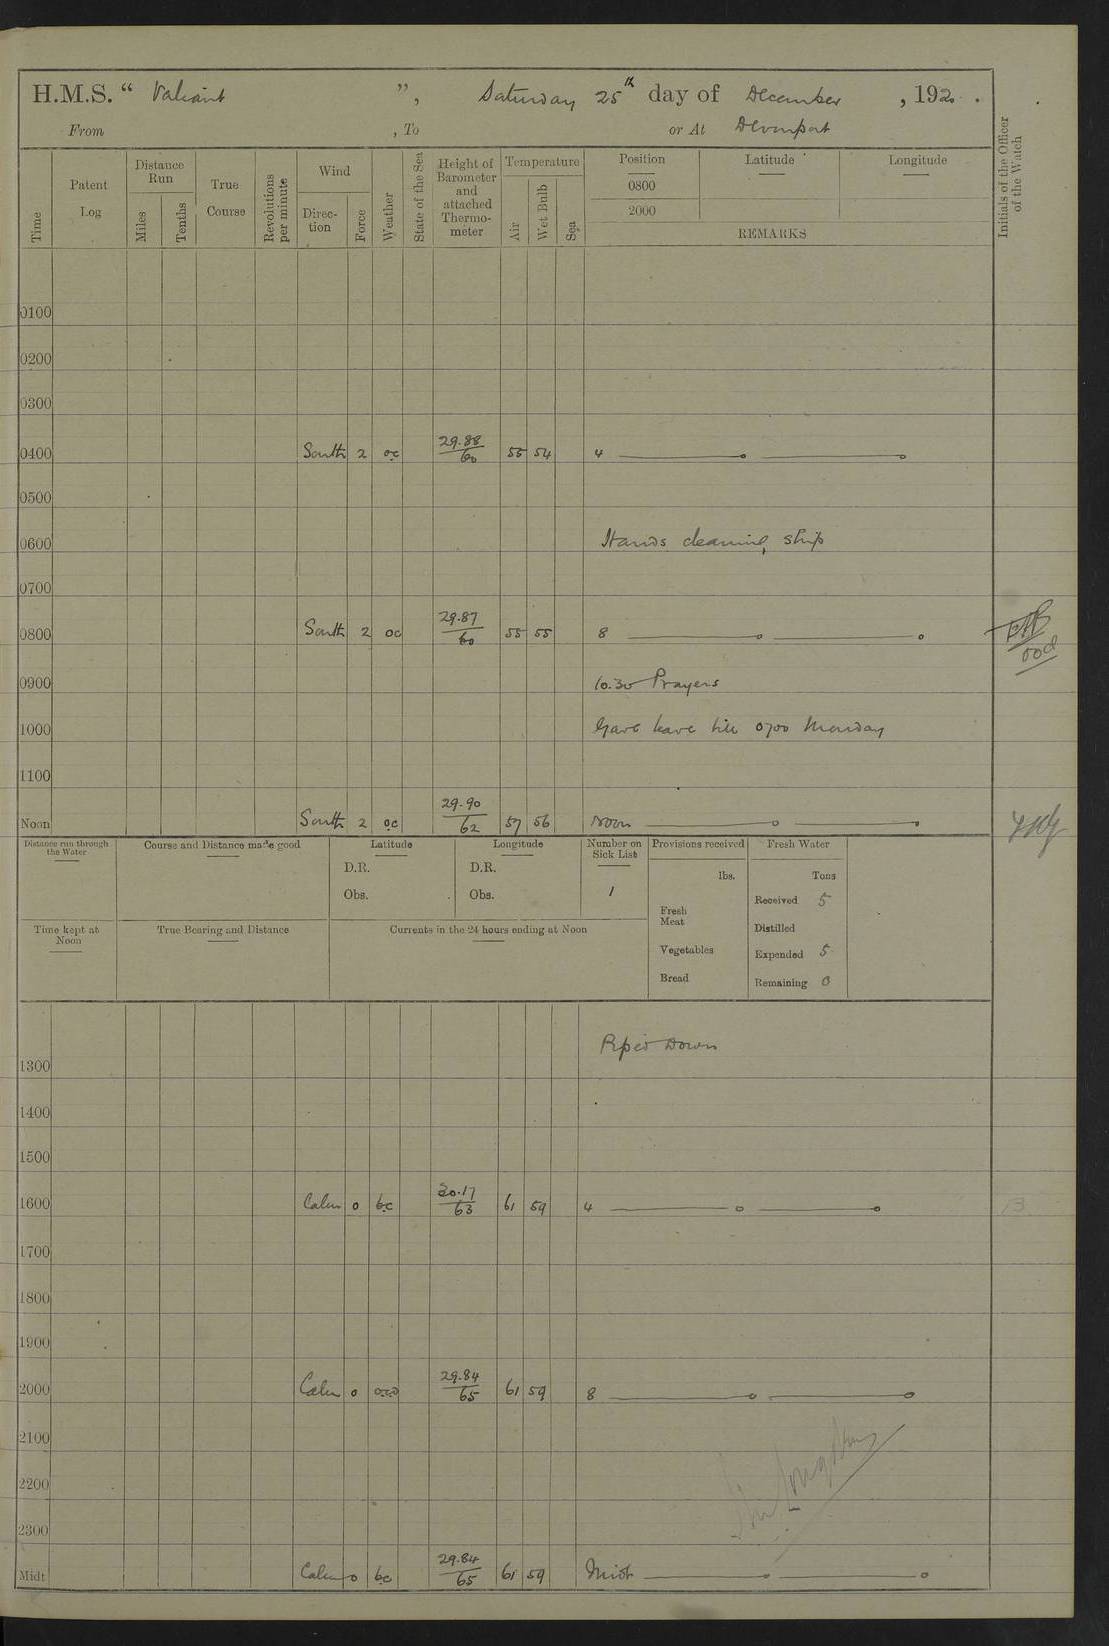 H.M.S. “ Valiant ”, Saturday 25th day of December , 1920 .
From , To or At Devonport
Time
Patent Log
Distance Run
Miles
Tenths
True Course
Revolutions per minute
Wind
Direc- tion
Force
Weather
State of the Sea
Height of Barometer and attached Thermo- meter
Temperature
Air
Wet Bulb
Sea
Position Latitude Longitude
0800
2000
REMARKS
Initials of the Officer of the Watch
0100
0200
0300
0400 South 2 oc 29.88/60 55 54 4
0500
0600 Hands cleaning ship
0700
0800 South 2 oc 29.87/60 55 55 8
OOD
0900 10.30 Prayers
1000 Gave leave till 0700 Monday
1100
Noon South 2 oc 29.90/62 57 56 Noon
Distance run through the Water
Course and Distance made good
Latitude
D.R.
Obs.
Longitude
D.R.
Obs.
Number on Sick List
1
Provisions received
lbs.
Fresh Meat
Vegetables
Bread
Fresh Water
Tons
Received 5
Distilled
Expended 5
Remaining 0
Time kept at Noon
True Bearing and Distance
Currents in the 24 hours ending at Noon
Piped Down
1300
1400
1500
1600 Calm 0 bc 30.17/63 61 59 4
1700
1800
1900
2000 Calm 0 29.84/65 61 59 8
2100
2200
2300
Midt Calm 0 bc 29.84/65 61 59 Midt